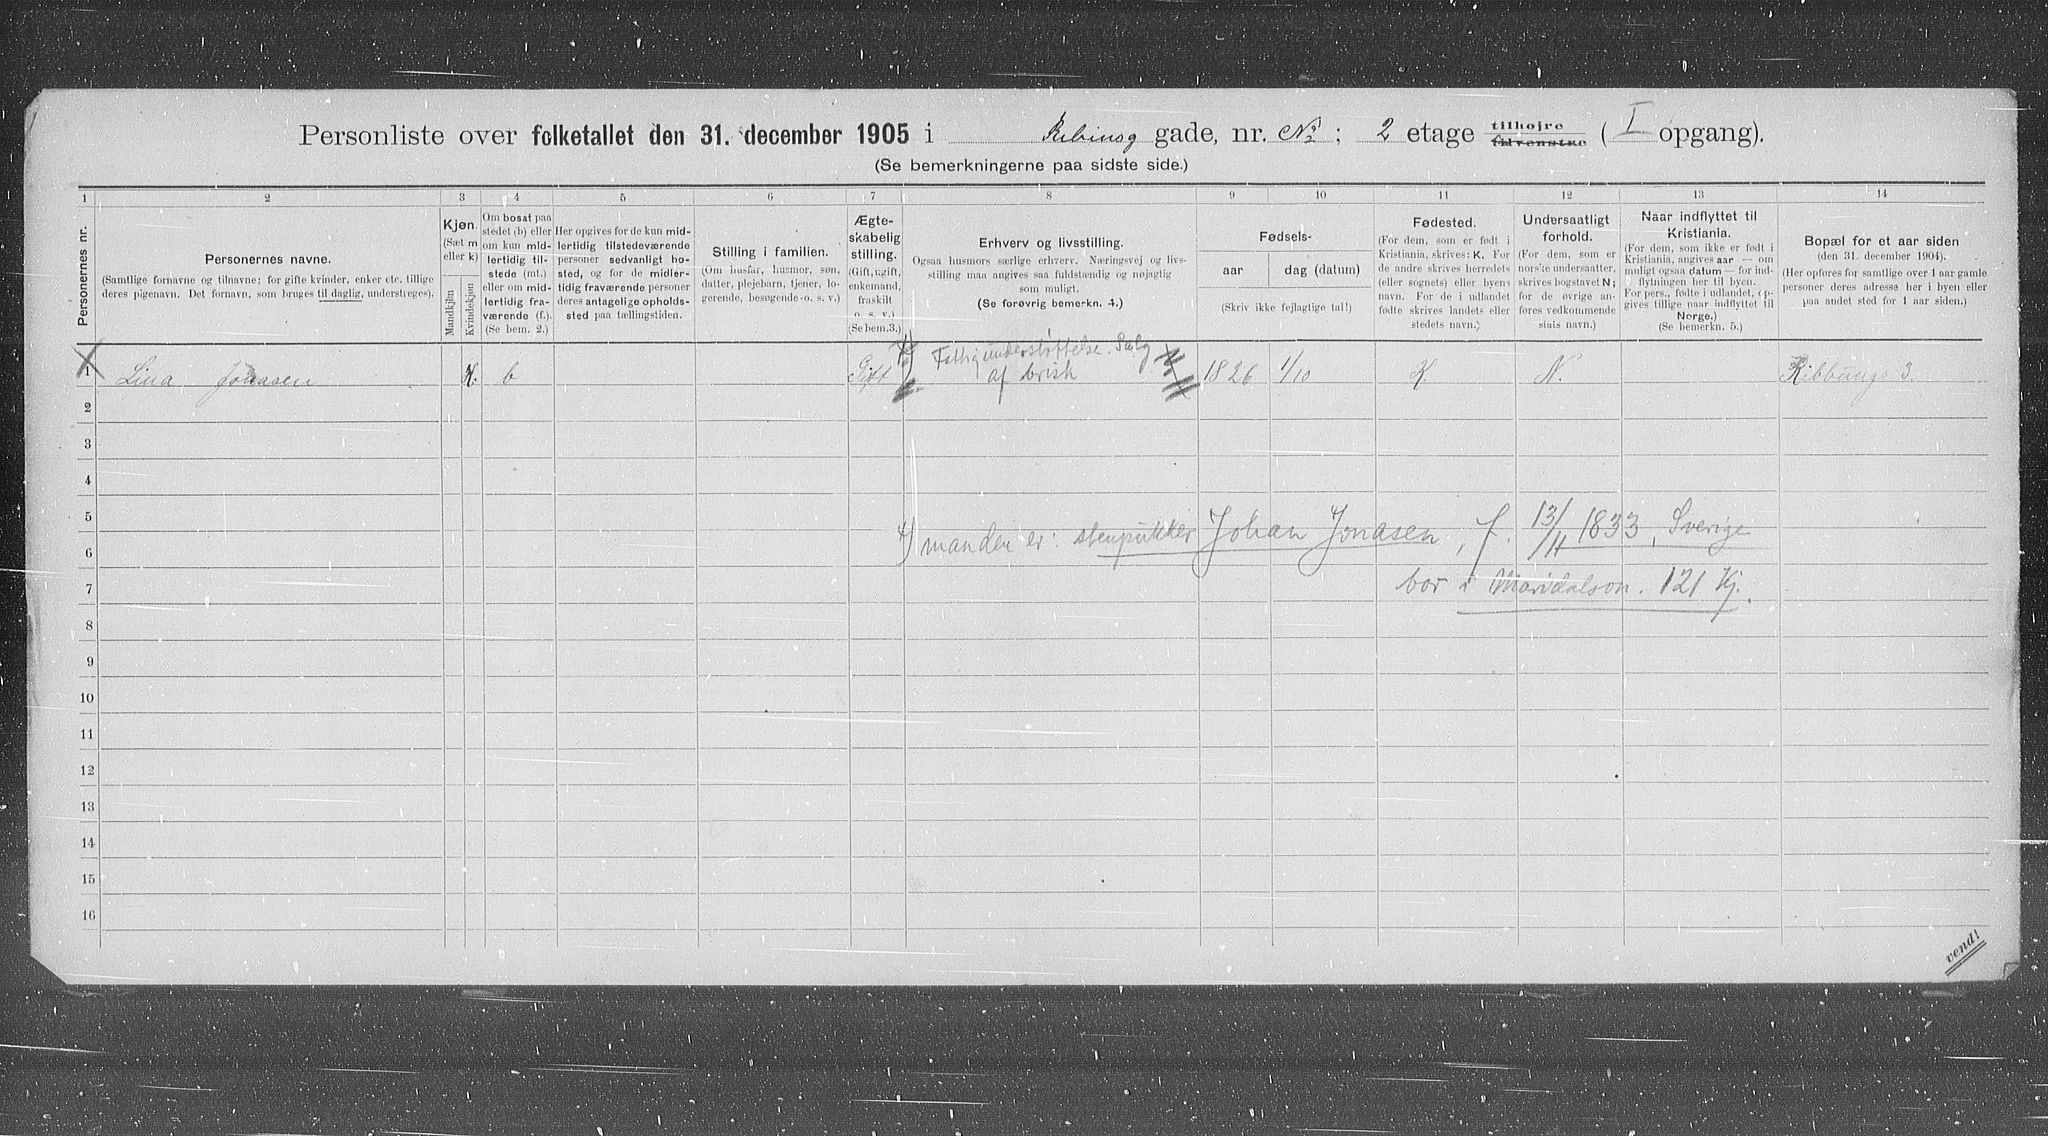 Personliste over folketallet den 31. december 1905 i Ribinsg gade, nr. No; 2 etage tilhøjre tilvenstre (I opgang).
(Se bemerkningerne paa sidste side.)
1 2 3 4 5 6 7 8 9 10 11 12 13 14
Personernes nr.
Personernes navne.
(Samtlige fornavne og tilnavne; for gifte kvinder, enker etc. tillige
deres pigenavn. Det fornavn, som bruges til daglig, understreges).
Kjøn.
(Sæt m
eller k)
Mandkjøn
Kvindekjøn
Om bosat paa
stedet (b) eller
om kun mid-
lertidig til-
stede (mt.)
eller om mid-
lertidig fra-
værende (f.).
(Se bem. 2.)
Her opgives for de kun mid-
lertidig tilstedeværende
personer sedvanlig bo-
sted, og for de midler-
tidig fraværende personer
deres antagelige opholds-
sted paa tællingstiden.
Stilling i familien.
(Om husfar, husmor, søn,
datter, plejebarn, tjener, lo-
gerende, besøgende o. s. v.)
Ægte-
skabelig
stilling.
(Gift, ugift,
enkemand,
fraskilt
o. s. v.)
(Se bem.3.)
Erhverv og livsstilling.
Ogsaa husmors særlige erhverv. Næringsvej og livs-
stilling maa angives saa fuldstændig og nøjagtig
som muligt.
(Se forøvrig bemerkn. 4.)
Fødsels-
aar
dag (datum)
(Skriv ikke fejlagtige tal!)
Fødested.
(For dem, som er født i
Kristiania, skrives: K. For
de andre skrives herredets
(eller sognets) eller byens
navn. For de i udlandet
fødte skrives landets eller
stedets navn.)
Undersaatligt
forhold.
(For dem, som er
norske undersaatter,
skrives bogstavet N;
for de øvrige an-
føres vedkommende
stats navn.)
Naar indflyttet til
Kristiania.
(For dem, som ikke er født i
Kristiania, angives aar — om
muligt ogsaa datum — for ind-
flytningen her til byen.
For pers., fødte i udlandet, op-
gives tillige naar indflyttet til
Norge.)
(Se bemerkn. 5.)
Bopæl for et aar siden
(den 31. december 1904).
(Her opføres for samtlige over 1 aar gamle
personer deres adresse her i byen eller
paa andet sted for 1 aar siden.)
1 Lina Jonasen K. b Gift Fattigunderstøttelse. Salg 1826 1/10 K. N. Ribbungs 3.
af brisk
2
3
4
5
6
manden er: stenpukker Johan Jonasen, f. 13/11 1833, Sverige
7
bor i Maridalsvn. 121 Kj.
8
9
10
11
12
13
14
15
16
vend!